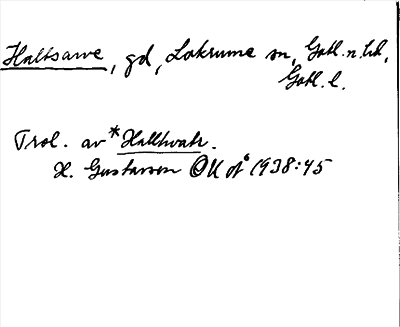 Hallsarve, gd, Lokrume sn, Gotl. n. hd,
Gotl. l.
Trol. av *Hallhvatr.
H. Gustavson
1938:45